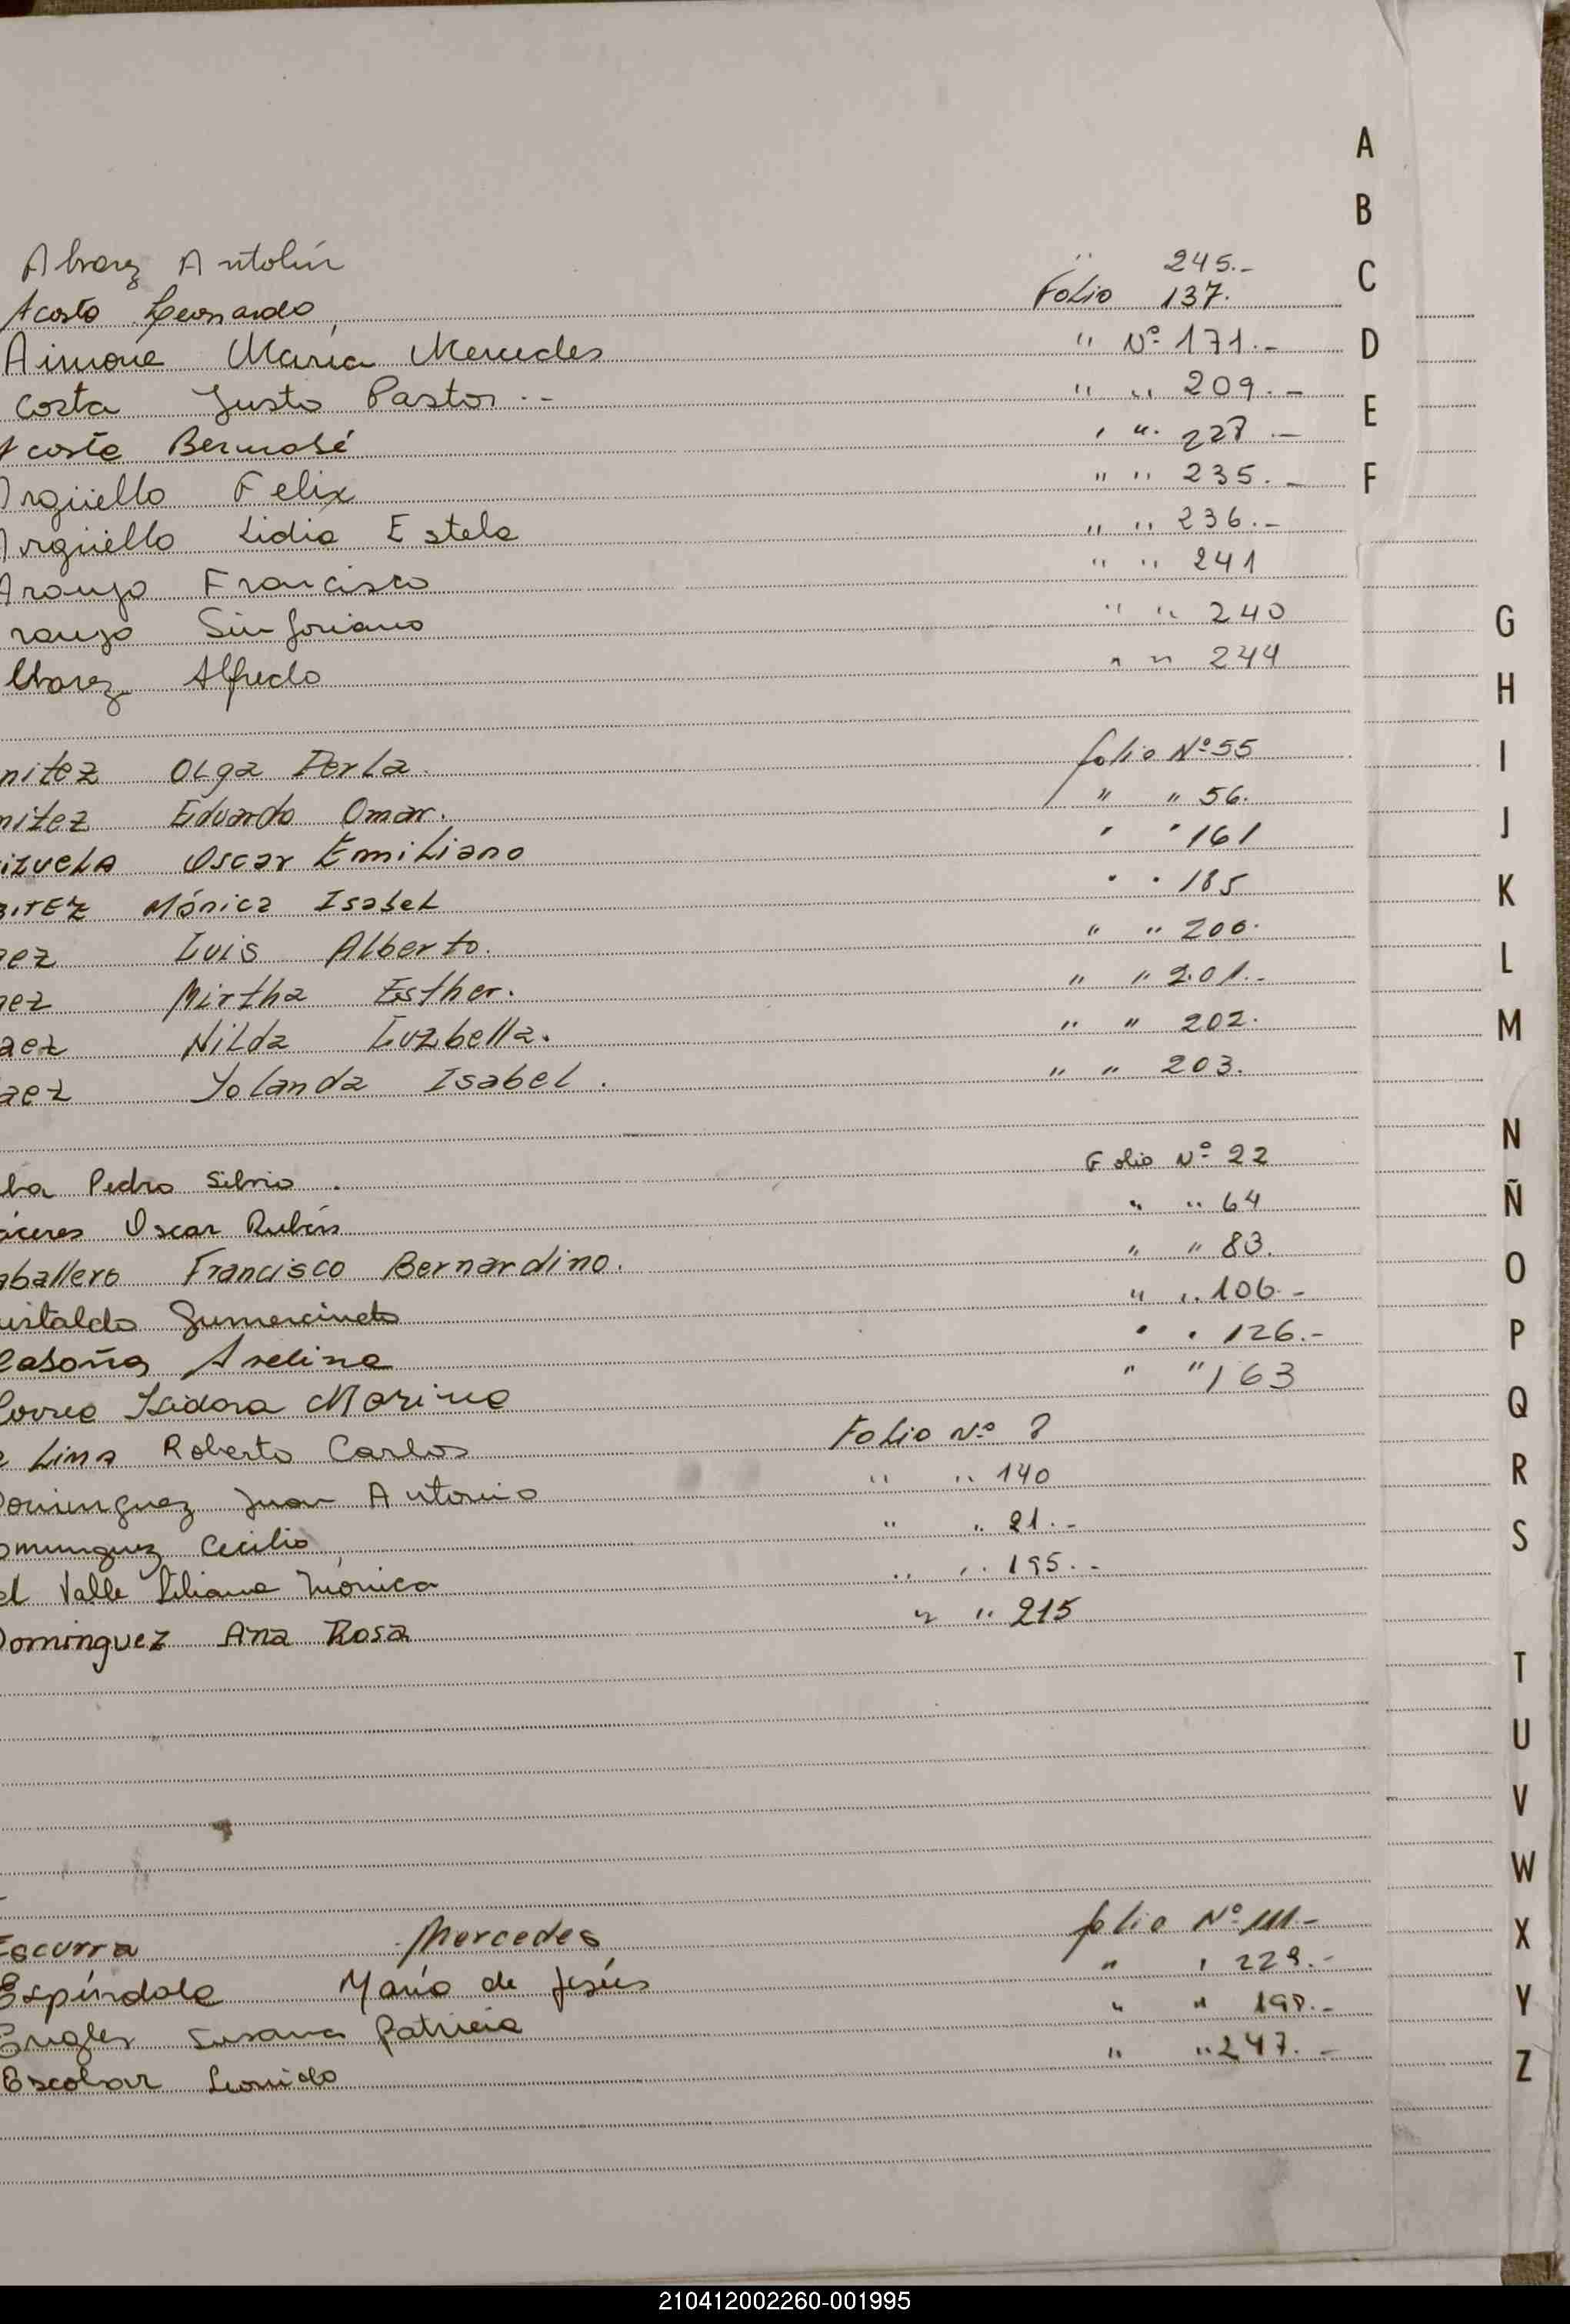 Alvarez Antolín " 245.-
Acosta Leonardo Folio 137.
Aimoné María Mercedes " Nº 171.-
costa Justo Pastor.-- " " 209.-
Acosta Bernabé " " 228.-
Argüello Felix " " 235.-
Argüello Lidia Estela " " 236.-
Araujo Francisco " " 241
raujo Sinforiano " " 240
lvarez Alfredo " " 244
nitez Olga Perla. folio Nº 55
nitez Eduardo Omar. " " 56.
izuela Oscar Emiliano " " 161
nitez Mónica Isabel " " 185
aez Luis Alberto. " " 200.
aez Mirtha Esther. " " 201.-
aez Nilda Luzbella. " " 202.
aez Yolanda Isabel. " " 203.
lba Pedro Silvio. Folio Nº 22
áceres Oscar Rubén " " 64
aballero Francisco Bernardino. " " 83.
ristaldo Gumercindo " " 106.-
Cabaña Avelina " " 126.-
Correa Isidora Marina " " 163
e Lima Roberto Carlos Folio Nº 8
Dominguez Juan Antonio " " 140
ominguez Cecilio " " 21.-
el Valle Liliana Mónica " " 195.-
Dominguez Ana Rosa " " 215
Escurra Mercedes folio Nº 111-
Espíndola María de Jesús " " 229.-
Engler Susana Patricia " " 198.-
Escobar Leonido " " 247.-
A
B
C
D
E
F
G
H
I
J
K
L
M
N
Ñ
O
P
Q
R
S
T
U
V
W
X
Y
Z
210412002260-001995